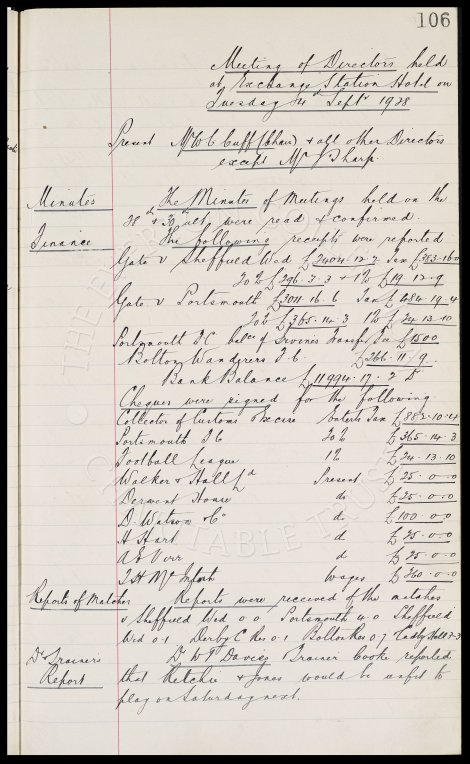 106
Meeting of Directors held
at Exchange Station Hotel on
Tuesday 4th Septr 1928
Present Mr W C Cuff (Chair) & all other Directors
except Mr J Sharp.
Minutes
The Minutes of Meetings held on the
28th & 30th ult, were read & confirmed.
Finance
The following receipts were reported
Gate v Sheffield Wed £2404.12.2 Tax £383.16.0
20% £296.3.3 & 1% £19.12.9
Gate v Portsmouth £3011.16.6 Tax £484.19.4
20% £365.14.3 1% £24.13.10
Portsmouth F C balce of Irvines Transfer Fee £1500
Bolton Wanderers F C £266.11.9.
Bank Balance £11994.17.2 D
Cheques were signed for the following
Collector of Customs & Excise Enterts Tax £882.10.4
Portsmouth F C 20% £365.14.3
Football League 1% £24.13.10
Walker & Hall Ld Present £25.0.0
Derwent House do £25.0.0
D. Watson & Co do £100.0.0
H Hart do £25.0.0
A E do £25.0.0
T H McIntosh Wages £360.0.0
Reports of Matches
Reports were received of the matches
v Sheffield Wed 0 0 Portsmouth 4.0 Sheffield
Wed 0.1 Derby C Res 0.1 Bolton Res 0.7
Dr Trainers
Report
Dr W P Davies Trainer Cooke reported
that Ritchie & Jones would be unfit to
play on Saturday next.
THE
TABLE TRUST